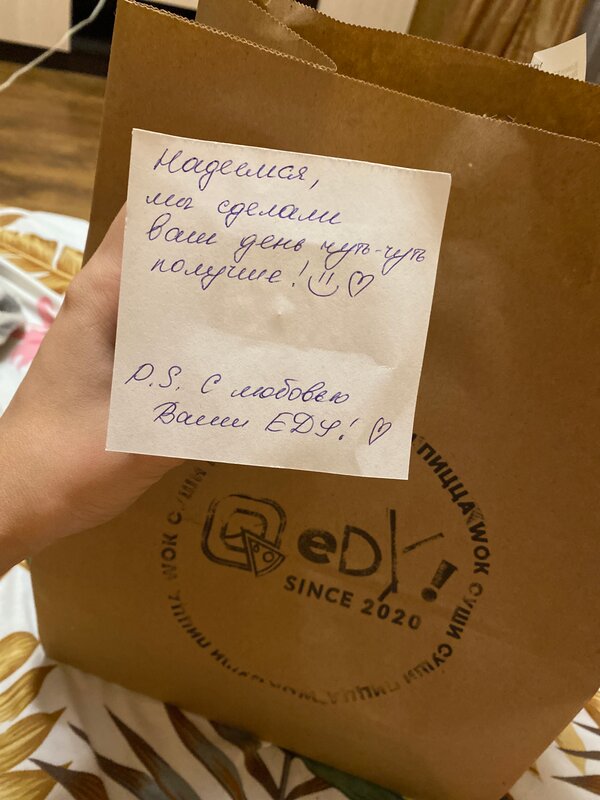 Надеемся,
мы сделали
ваш день чуть-чуть
получше!
P.S. С любовью
Ваши EДУ!
ПИЦЦА WOK СУШИ СУШИ ПИЦЦА WOK СУШИ ПИЦЦА WOK СУШИ
eDУ!
SINCE 2020